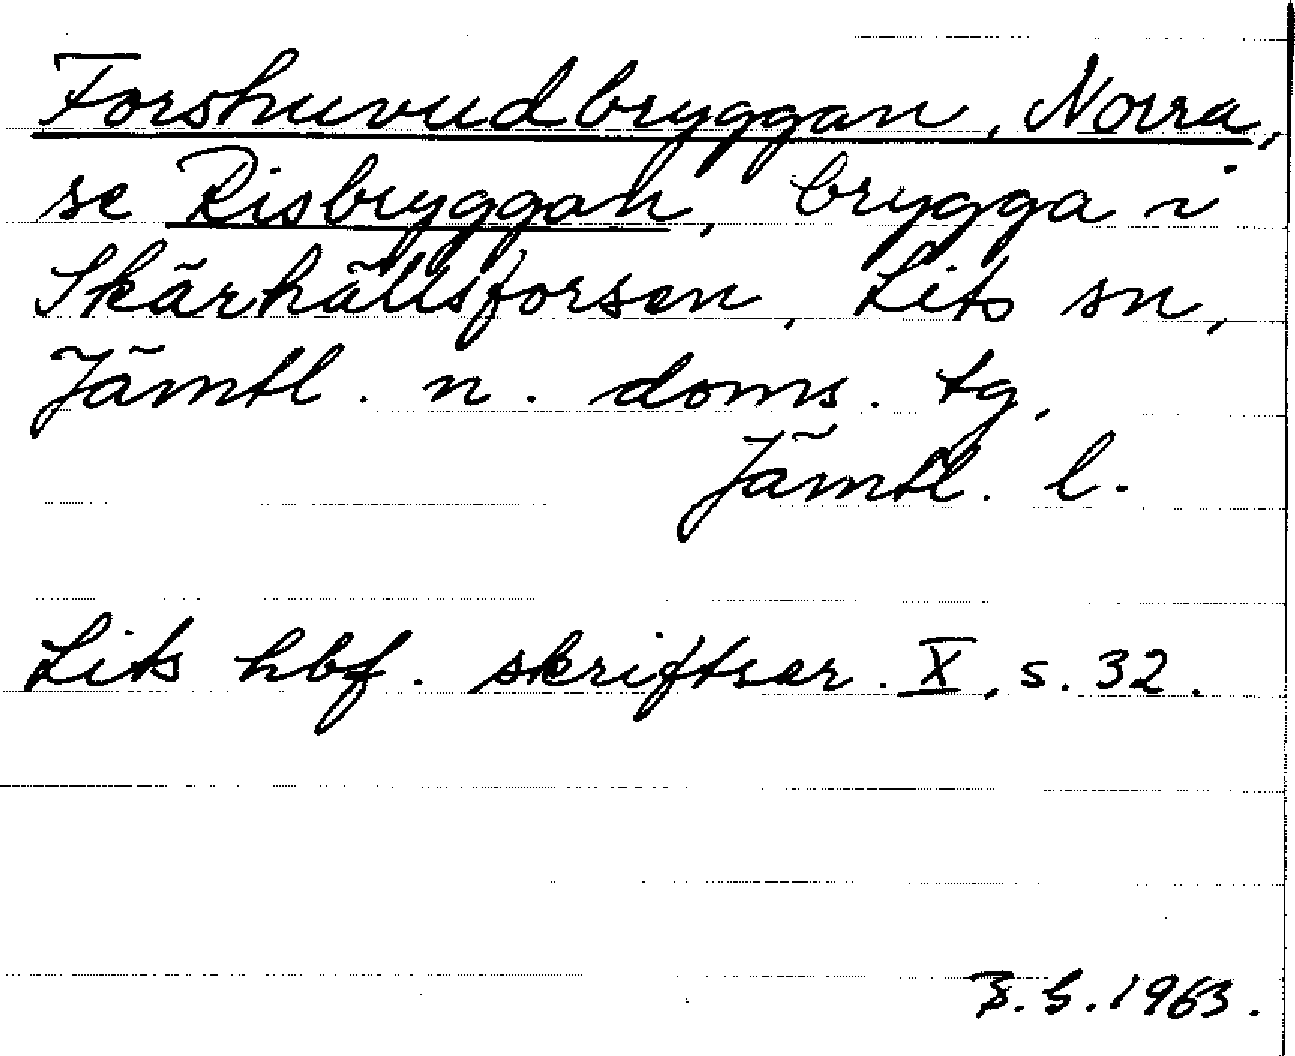 Forshuvudbryggan, Norra,
se Risbryggan, brygga i
Skärhällsforsen, Lits sn,
Jämtl. n. doms. tg,
Jämtl. l.
Lits hbf. skriftser. X, s. 32.
1963.